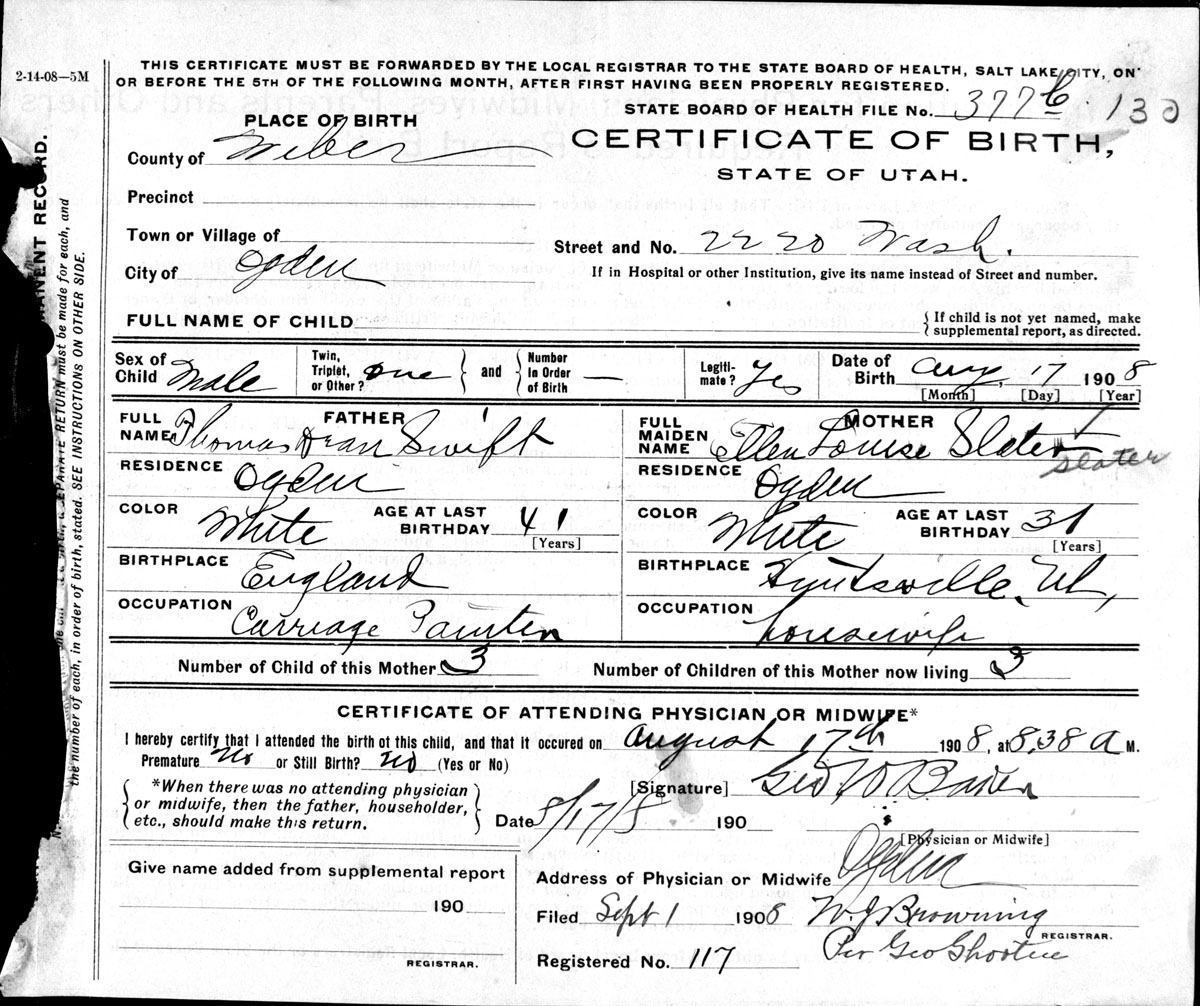 2-14-08—5M
THIS CERTIFICATE MUST BE FORWARDED BY THE LOCAL REGISTRAR TO THE STATE BOARD OF HEALTH, SALT LAKE CITY, ON
OR BEFORE THE 5TH OF THE FOLLOWING MONTH, AFTER FIRST HAVING BEEN PROPERLY REGISTERED.
STATE BOARD OF HEALTH FILE No. 377
PLACE OF BIRTH
CERTIFICATE OF BIRTH,
STATE OF UTAH.
County of Weber
Precinct
Town or Village of
Street and No. 2220 Wash.
City of Ogden
If in Hospital or other Institution, give its name instead of Street and number.
FULL NAME OF CHILD
If child is not yet named, make
supplemental report, as directed.
Sex of Child Male
Twin, Triplet, or Other? one and Number In Order of Birth —
Legiti-mate? Yes
Date of Birth Aug. 17 1908
[Month] [Day] [Year]
FATHER
FULL NAME Thomas Dean Swift
RESIDENCE Ogden
COLOR White AGE AT LAST BIRTHDAY 41
[Years]
BIRTHPLACE England
OCCUPATION Carriage Painter
MOTHER
FULL MAIDEN NAME Ellen Louise Slater
Slater
RESIDENCE Ogden
COLOR White AGE AT LAST BIRTHDAY 31
[Years]
BIRTHPLACE Huntsville, Ut,
OCCUPATION housewife
Number of Child of this Mother 3 Number of Children of this Mother now living 3
CERTIFICATE OF ATTENDING PHYSICIAN OR MIDWIFE*
I hereby certify that I attended the birth of this child, and that it occured on August 17th 1908, at 8,38 A M.
Premature No or Still Birth? No (Yes or No)
*When there was no attending physician
or midwife, then the father, householder,
etc., should make this return.
[Signature] Geo W Baker
Date 8/17/8 190
[Physician or Midwife]
Give name added from supplemental report
190
REGISTRAR.
Address of Physician or Midwife Ogden
Filed Sept 1 1908 W. J. Browning
REGISTRAR.
Per Geo
Registered No. 117
ANENT RECORD.
RETURN must be made for each, and
the number of each, in order of birth, stated. SEE INSTRUCTIONS ON OTHER SIDE.